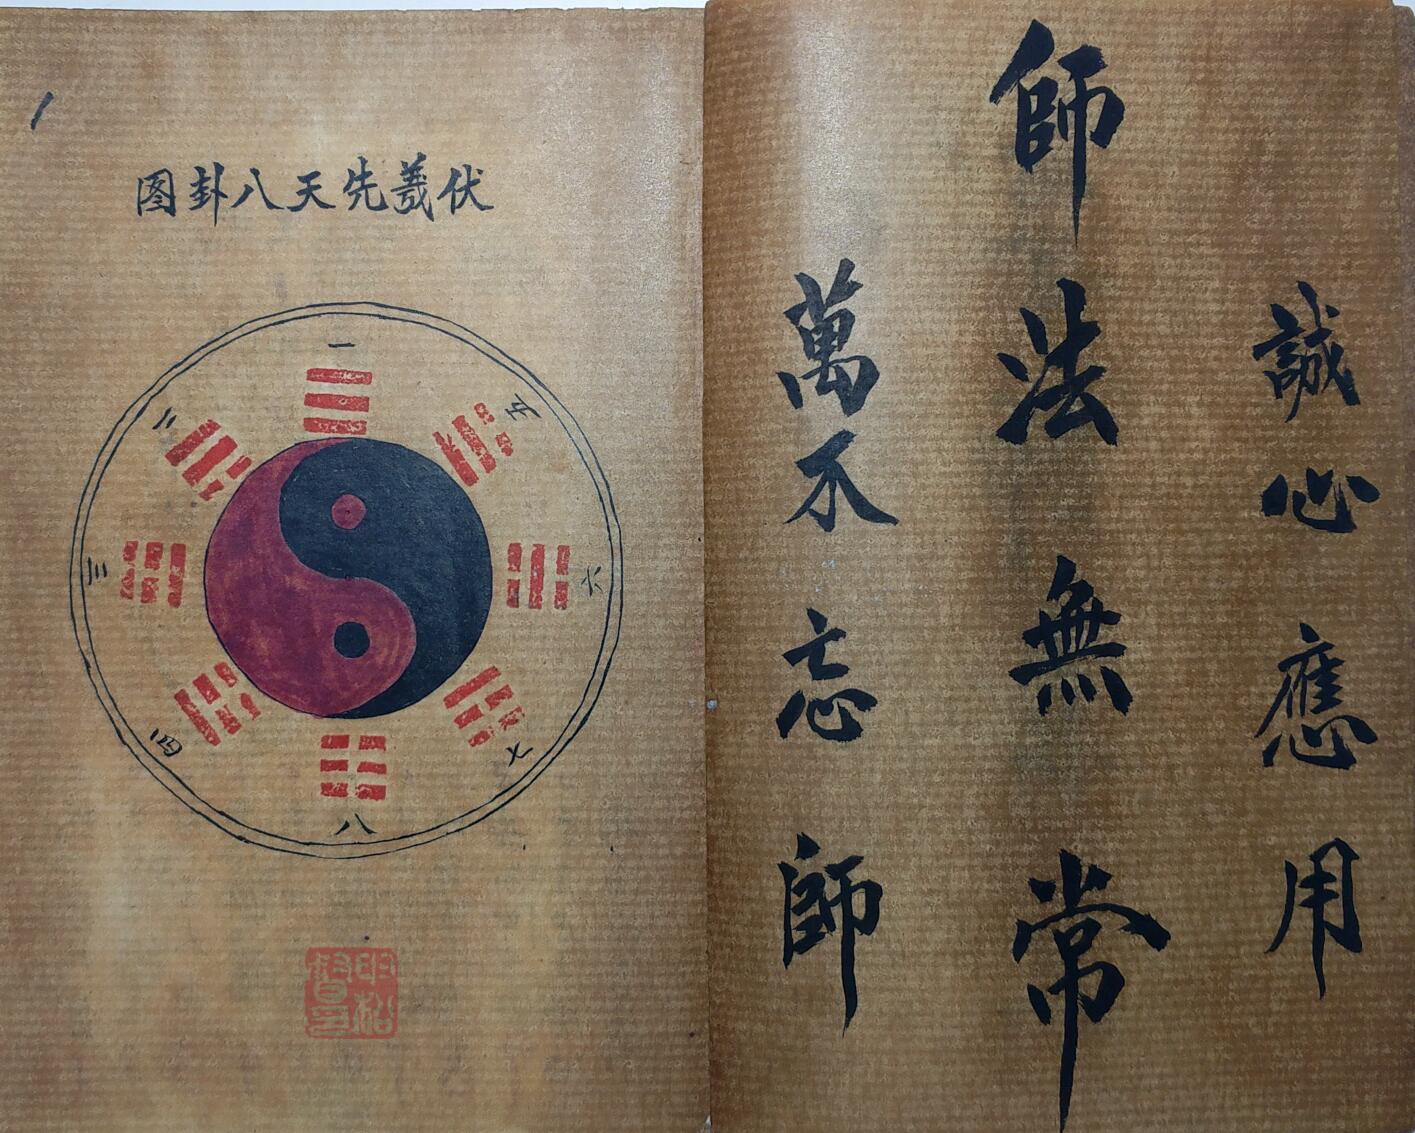 誠心應用
師法無常
萬不忘師
伏羲先天八卦图
一
二
三
四
五
六
七
八